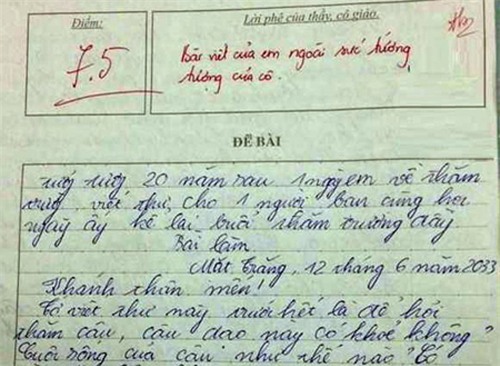 Điểm:
Lời phê của thầy, cô giáo.
7.5
Bài viết của em ngoài sức tưởng
tượng của cô.
ĐỀ BÀI
20 năm sau 1 ngày em về thăm
trường viết thư cho 1 người bạn cùng học
ngày ấy kể lại buổi thăm trường đầy
Bài làm
Mặt Trăng, 12 tháng 6 năm 2033
Khánh thân mến!
Tớ viết thư này trước hết là để hỏi
thăm cậu, cậu dạo này có khoẻ không
Cuộc sống của cậu như thế nào? Có